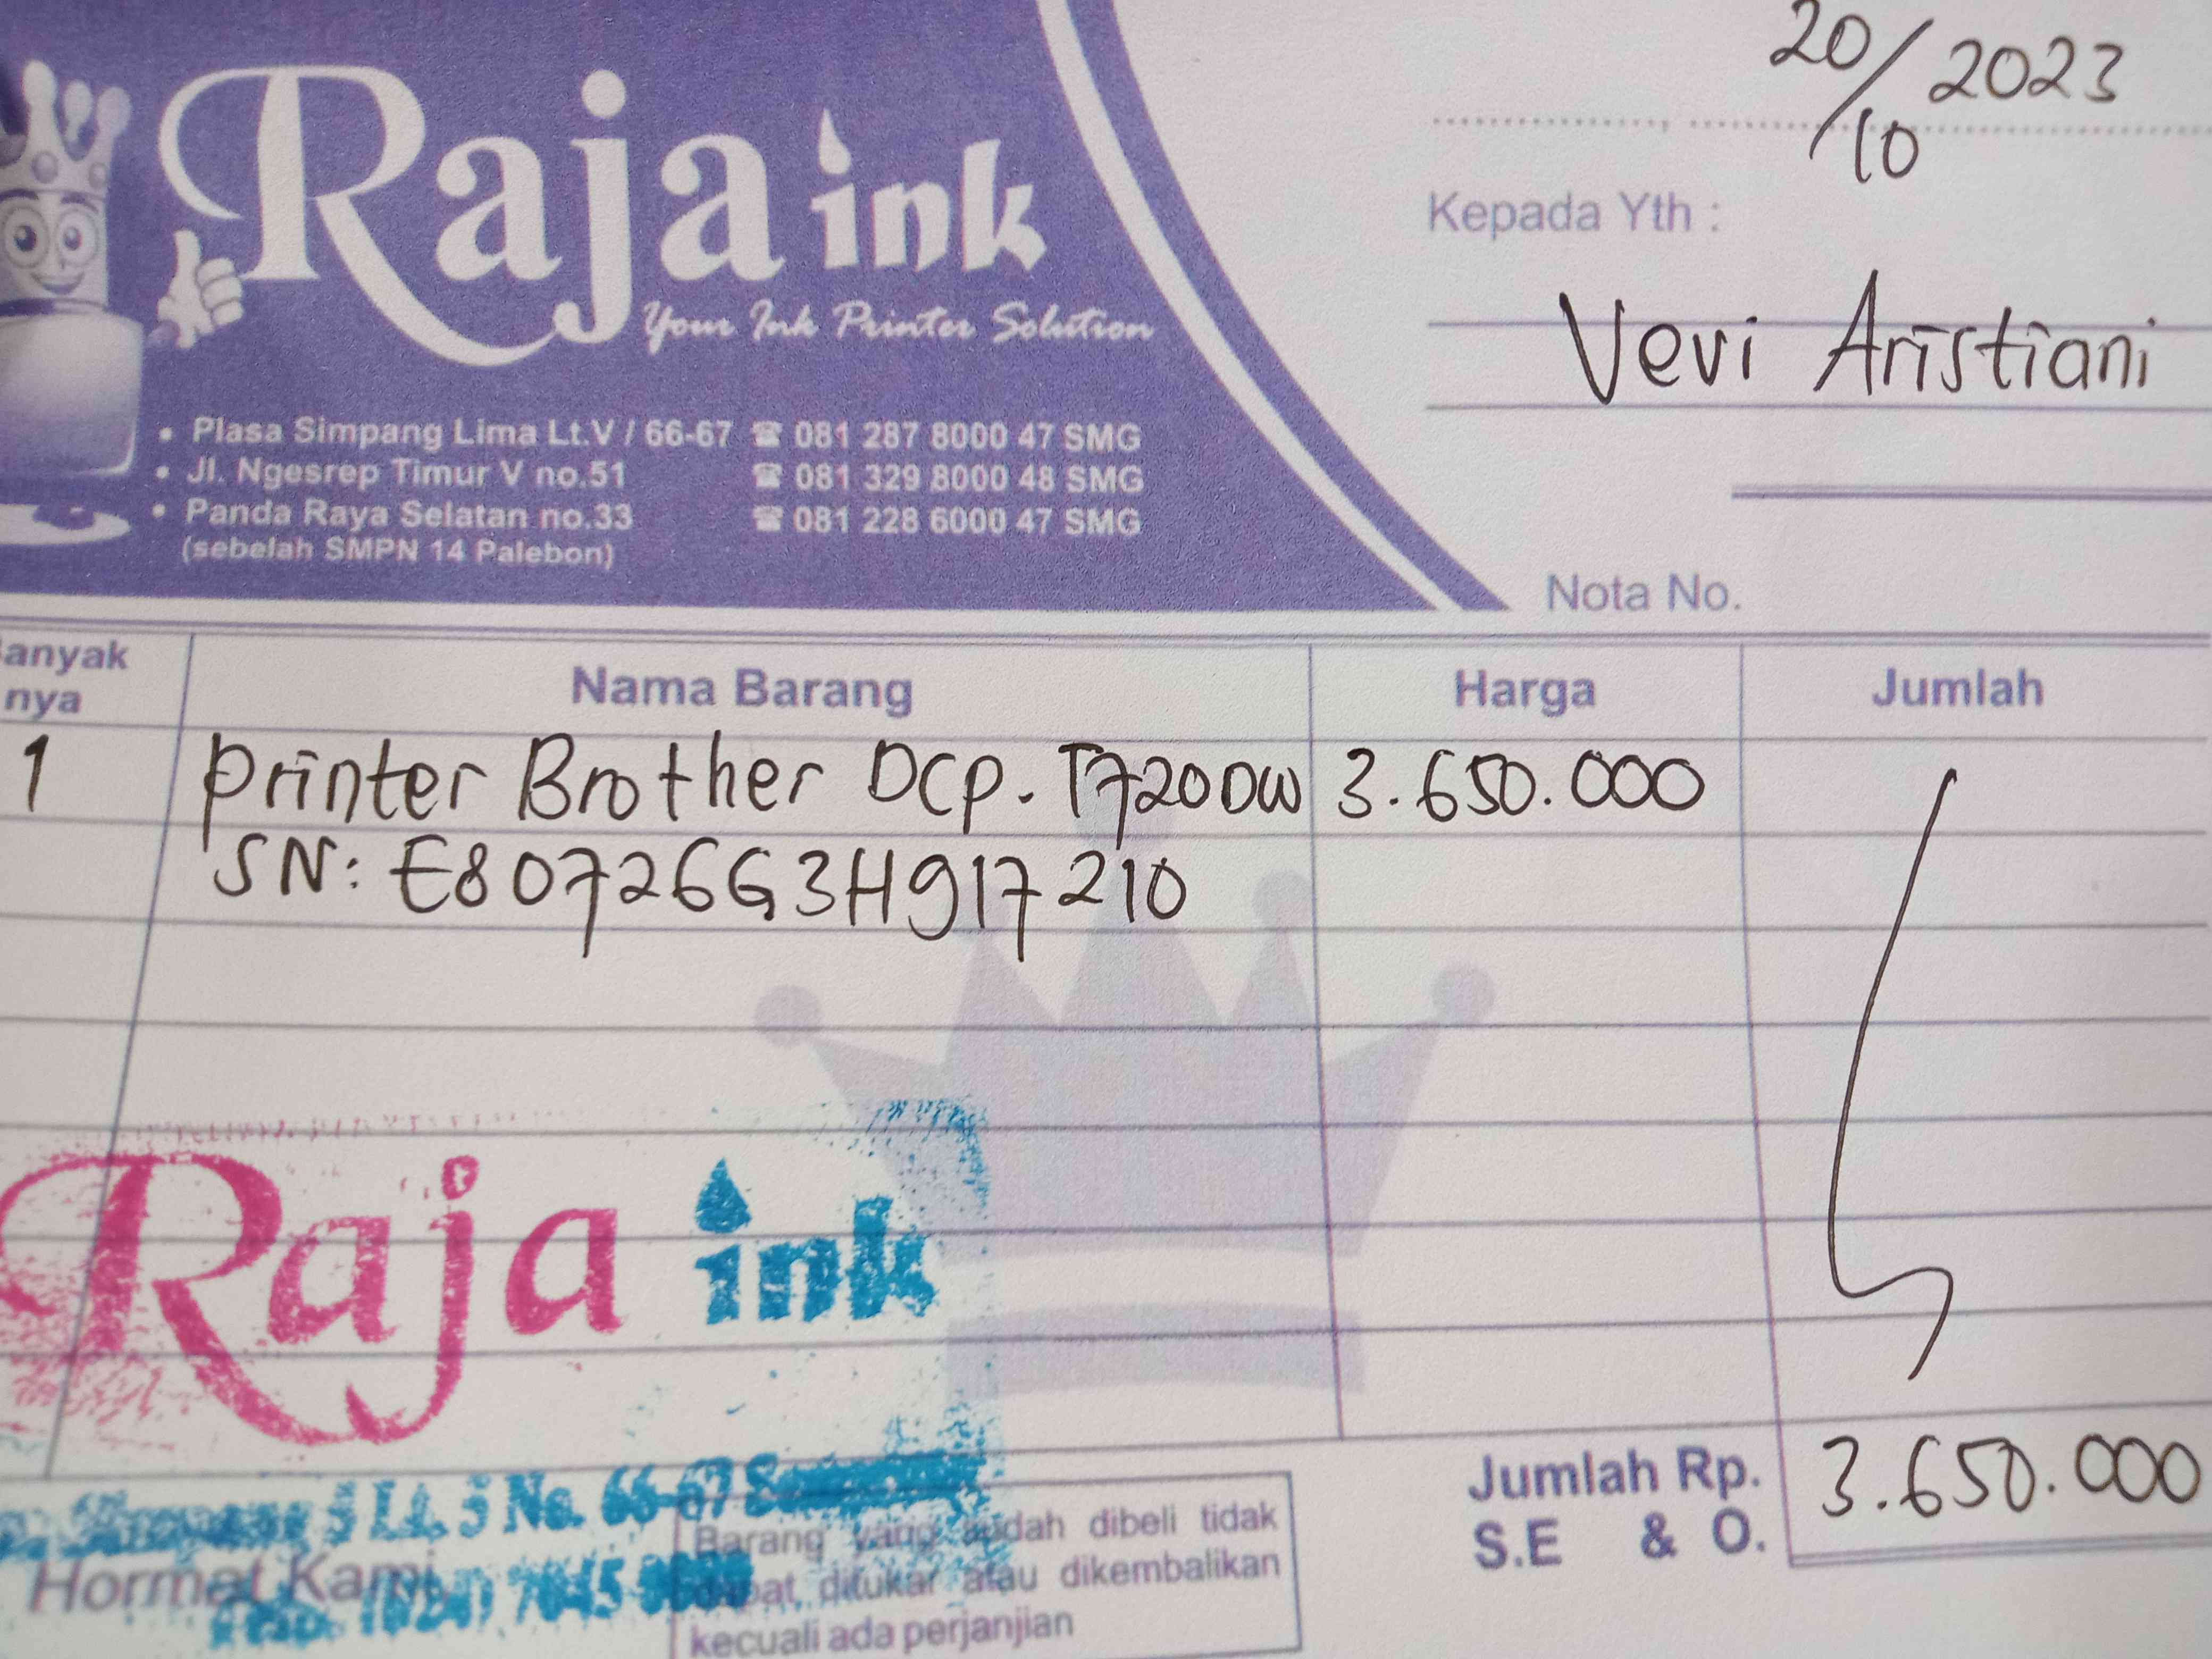 20/10 2023
Raja ink
Your Ink Printer Solution
Kepada Yth :
Vevi Aristiani
• Plasa Simpang Lima Lt.V / 66-67 ☎ 081 287 8000 47 SMG
• Jl. Ngesrep Timur V no.51 ☎ 081 329 8000 48 SMG
• Panda Raya Selatan no.33 ☎ 081 228 6000 47 SMG
(sebelah SMPN 14 Palebon)
Nota No.
anyak nya Nama Barang Harga Jumlah
1 Printer Brother DCP. T720DW 3.650.000
SN: E80726G3H917210
Raja ink
5 Lt. 5 No. 66-67
Jumlah Rp. 3.650.000
S.E & O.
Hormat Kami,
(024) 7645
Barang yang sudah dibeli tidak
dapat ditukar atau dikembalikan
kecuali ada perjanjian